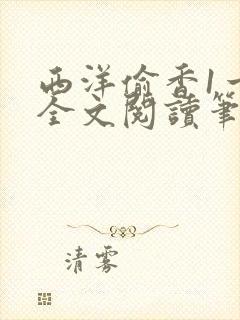 西洋偷香1一
全文閱讀筆
清雾